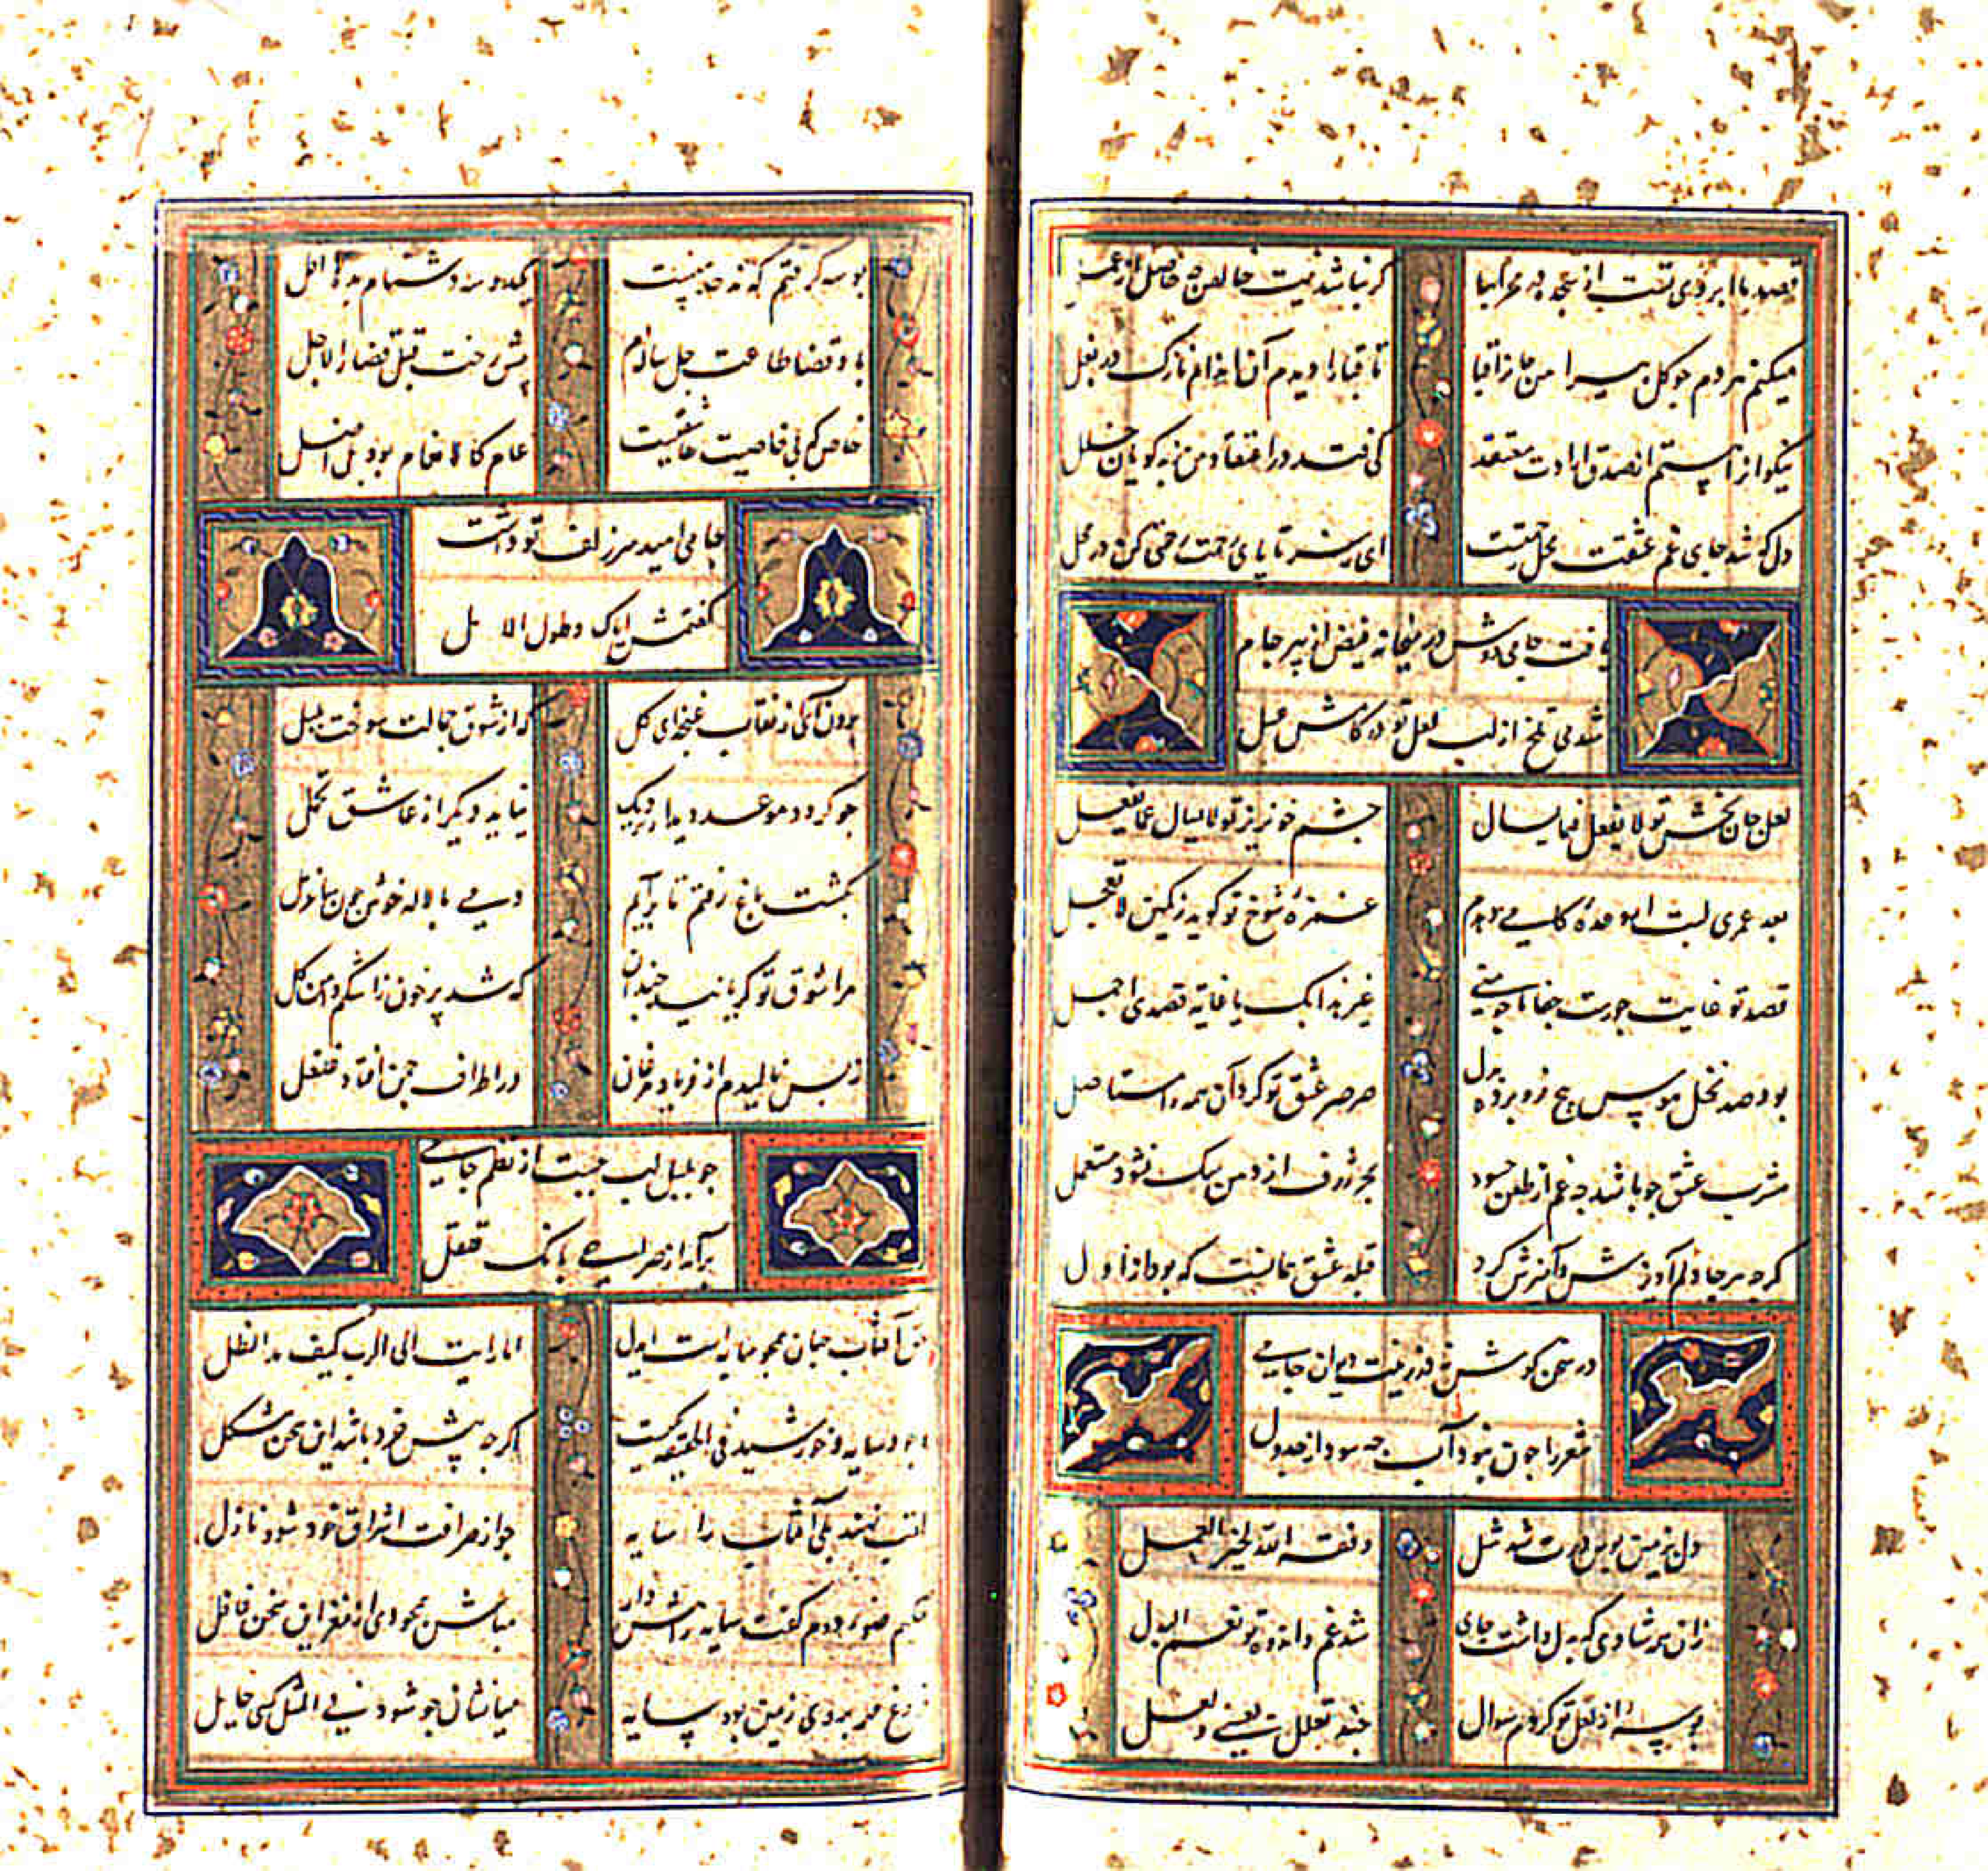 قصد ما ابروی تست از سجده در محرابها
گر نباشد نیت خالص چه حاصل از عمل
میکنم هر دم چو گل پیراهن جانرا قبا
تا قبا را دیدم آن اندام نازک در بغل
نیکوانرا هستم از صدق ارادت معتقد
کی فتد در اعتقاد من ز بدگویان خلل
دل که شد جای غم عشقت محل رحمتست
ای ز سر تا پای رحمت رحمی کن در محل
یافت جامی دوش در میخانه فیض از پیر جام
شد می تلخ از لب لعل تو در کامش عسل
لعل جان بخش تو لا یفعل فیما یسأل
چشم خونریز تو لا یسأل عما یفعل
بعد عمری لبت ار وعده کامی دهدم
غمزه شوخ تو گوید ز کمین لا تعجل
قصد تو غایت جورست و جفا با چو منی
غیر هذا بک یا غایة قصدی اجمل
بود صد نخل هوس بیخ فرو برده بدل
صرصر عشق تو کرد آن همه را مستأصل
مشرب عشق چو باشد چه غم از طعن حسود
بحر ژرف از دهن سگ نشود مستعمل
گرچه هر جا دلم آویزش و آمیزش کرد
قبله عشق همانست که بود از اول
در سخن کوش نه در زینت دیوان جامی
شعر را چون نبود آب چه سود از جدول
دل بزمین بوس درت شد مثل
وفقه الله لخیر العمل
زان همه شادی که بدل داشت جای
شد غم و اندوه تو نعم البدل
بوسه از لعل تو کردم سؤال
چند تعلل بعسی و لعل
بوسه گرفتم که نه حد منست
یکدو سه دشنام بده لا اقل
با تو قضا طاعت چل ساله‌ام
پیش رخت قبل قضاء الاجل
خاص که بی خاصیت عاشقیست
عام کالانعام بود بل اضل
جامی امید سر زلف تو داشت
گفتمش اینک و طول الامل
برون آی از نقاب غنچه ای گل
که از شوق جمالت سوخت بلبل
چو گردد موعد دیدار نزدیک
نیاید دیگر از عاشق تحمل
بگشت باغ رفتم تا برآیم
دمی با لاله خوش چون ساغر مل
مرا شوق تو گریانید چندان
که شد پر خون ز اشکم دامن گل
ز بس نالیدم از فریاد مرغان
در اطراف چمن افتاد غلغل
چو بلبل لب ببست از نظم جامی
برآمد از صراحی بانگ قلقل
آفتاب جهان همچو سایه است ای دل
اما رأیت الی الرب کیف مد الظل
وجود سایه و خورشید فی الحقیقه یکیست
اگر چه پیش خرد باشد این سخن مشکل
لقب نهند بلی آفتاب را سایه
چو از صرافت اشراق خود شود نازل
حکیم ضوء دوم گفت سایه را هش دار
مباش همچو وی از مغز این سخن غافل
فروغ خور بروی زمین بود سایه
میانشان چو شود فی المثل کسی حایل